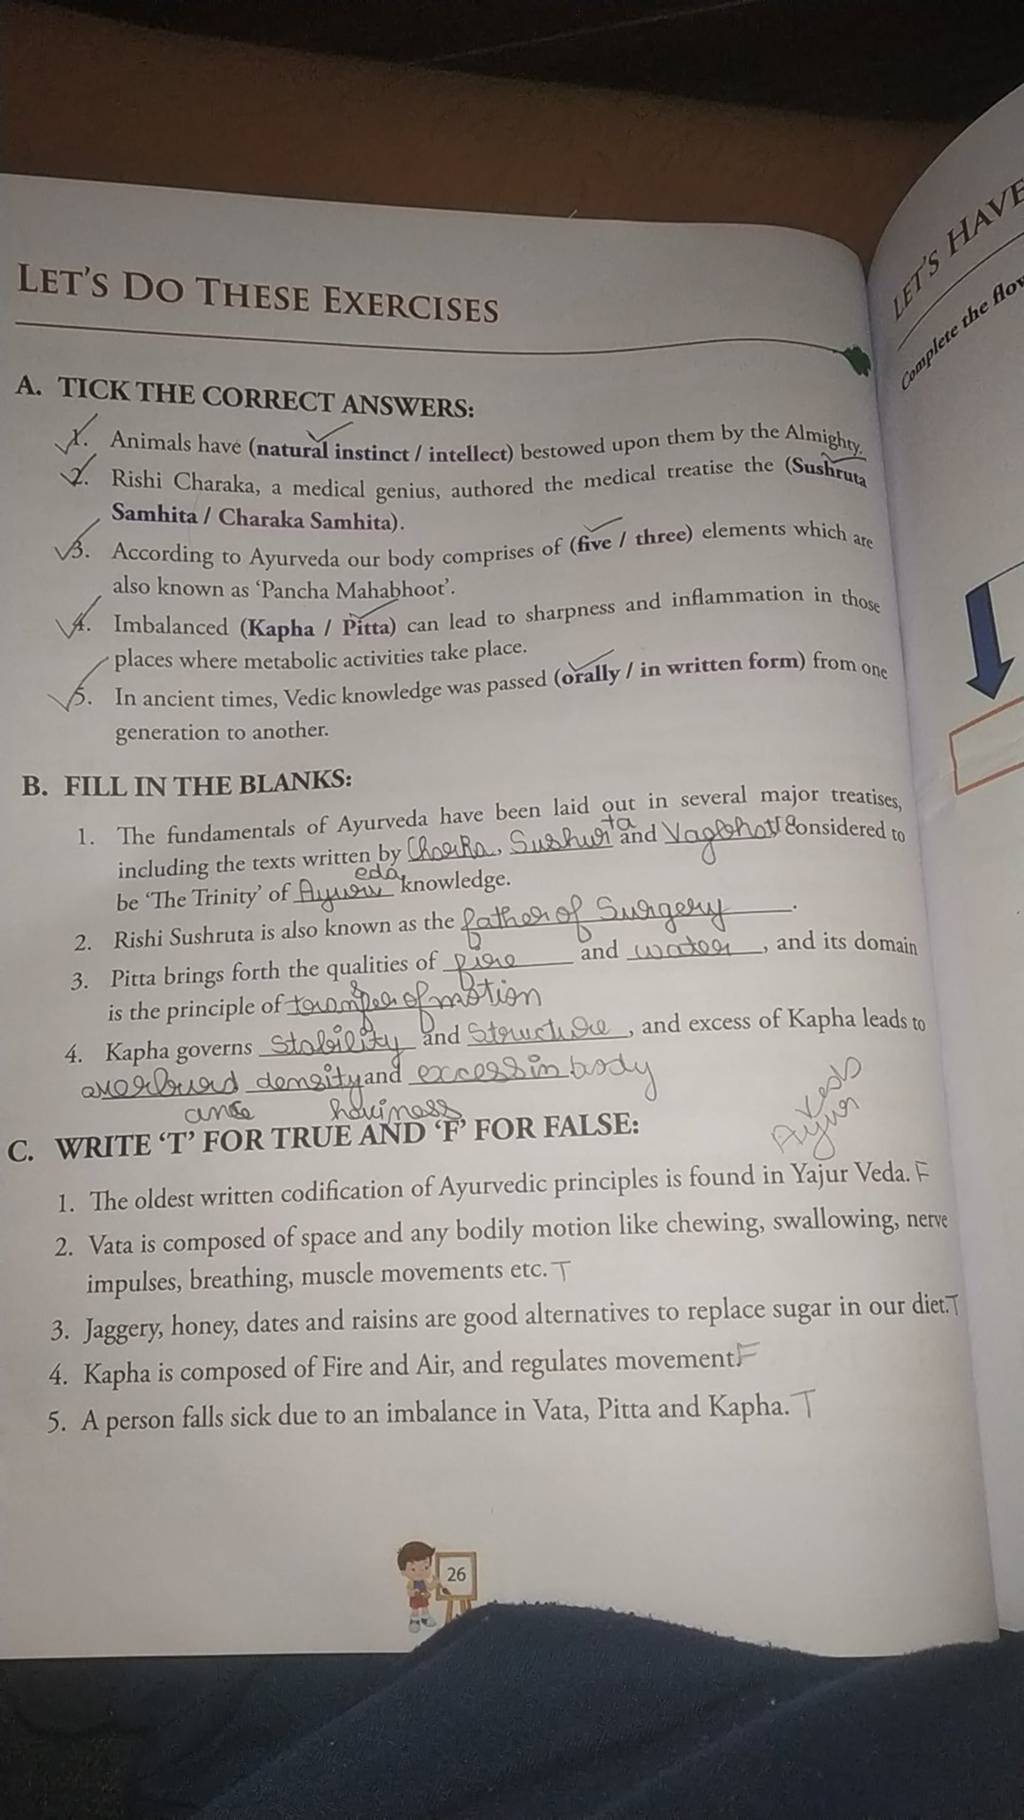 LET'S DO THESE EXERCISES
A. TICK THE CORRECT ANSWERS:
1. Animals have (natural instinct / intellect) bestowed upon them by the Almighty.
2. Rishi Charaka, a medical genius, authored the medical treatise the (Sushruta
Samhita / Charaka Samhita).
3. According to Ayurveda our body comprises of (five / three) elements which are
also known as 'Pancha Mahabhoot'.
4. Imbalanced (Kapha / Pitta) can lead to sharpness and inflammation in those
places where metabolic activities take place.
5. In ancient times, Vedic knowledge was passed (orally / in written form) from one
generation to another.
B. FILL IN THE BLANKS:
1. The fundamentals of Ayurveda have been laid out in several major treatises,
including the texts written by , and considered to
be 'The Trinity' of knowledge.
2. Rishi Sushruta is also known as the father of Surgery.
3. Pitta brings forth the qualities of fire and water, and its domain
is the principle of of motion
4. Kapha governs Stability and Structure, and excess of Kapha leads to
density and excess in body
C. WRITE 'T' FOR TRUE AND 'F' FOR FALSE:
1. The oldest written codification of Ayurvedic principles is found in Yajur Veda. F
2. Vata is composed of space and any bodily motion like chewing, swallowing, nerve
impulses, breathing, muscle movements etc. T
3. Jaggery, honey, dates and raisins are good alternatives to replace sugar in our diet. T
4. Kapha is composed of Fire and Air, and regulates movement. F
5. A person falls sick due to an imbalance in Vata, Pitta and Kapha. T
26
LET'S HAVE
Complete the flow